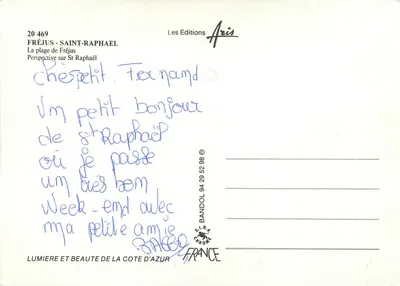 20 469
FRÉJUS - SAINT-RAPHAEL
La plage de Fréjus
Perspective sur St Raphaël
Les Editions Aris
petit Fernand
Un petit bonjour
de St Raphaël
où je passe
um très bom
Week-end avec
ma petite amie
BANDOL 94 29 52 98 ©
FRANCE
LUMIERE ET BEAUTE DE LA COTE D'AZUR